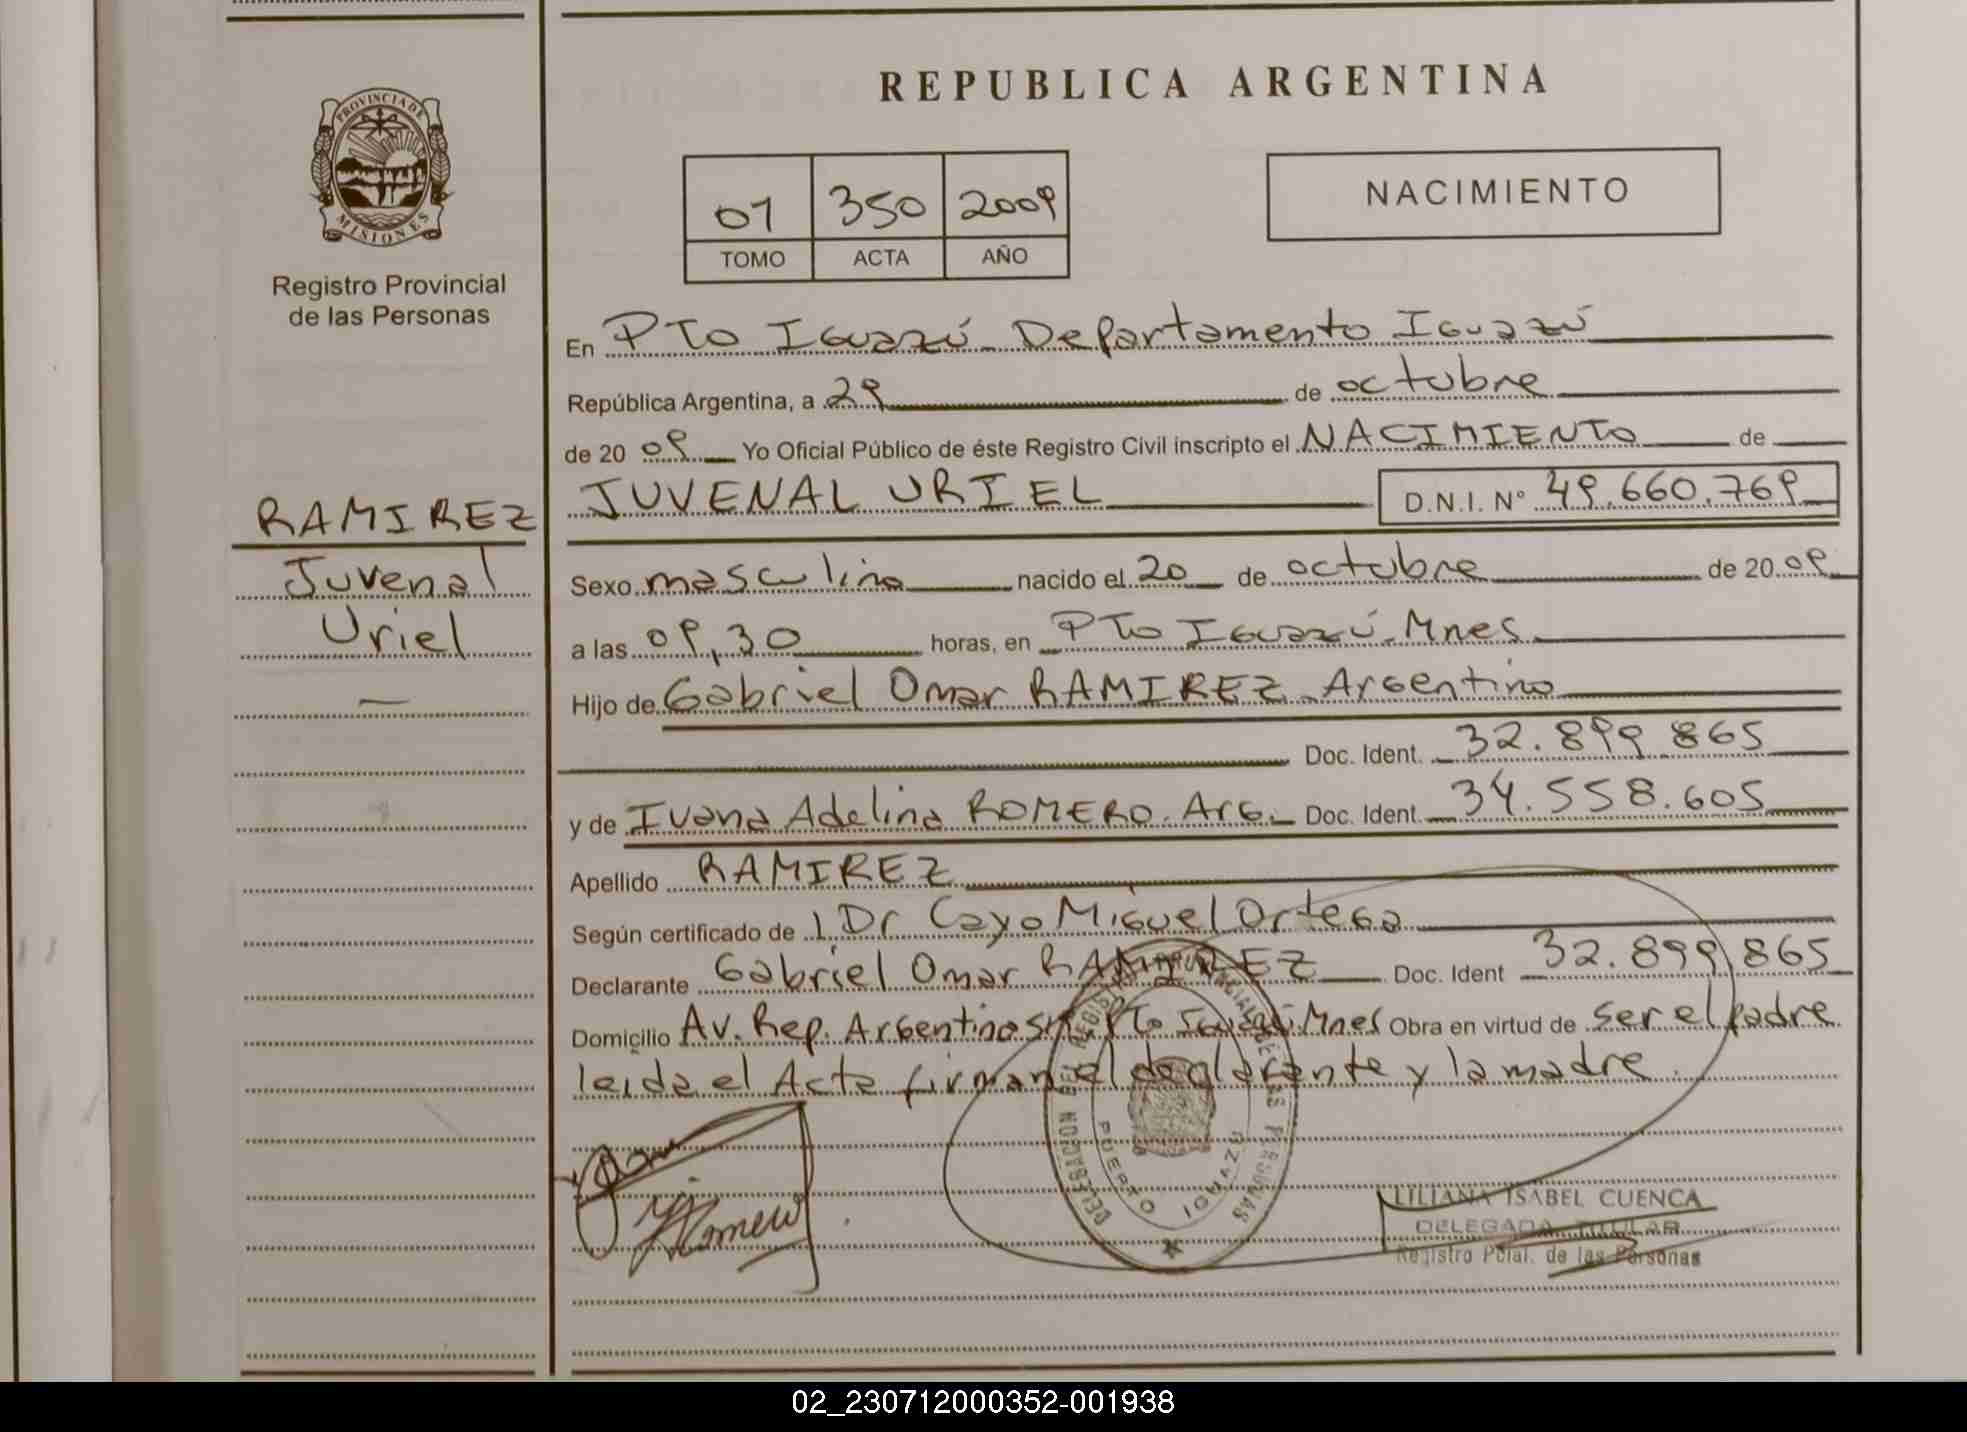 REPUBLICA ARGENTINA
PROVINCIA DE
MISIONES
Registro Provincial
de las Personas
07 350 2009
TOMO ACTA AÑO
NACIMIENTO
En Pto Iguazú Departamento Iguazú
República Argentina, a 29 de octubre
de 20 09 Yo Oficial Público de éste Registro Civil inscripto el NACIMIENTO de
JUVENAL URIEL D.N.I. Nº 49.660.769
RAMIREZ
Juvenal
Uriel
Sexo masculino nacido el 20 de octubre de 20 09
a las 09,30 horas, en Pto Iguazú. Mnes
Hijo de Gabriel Omar RAMIREZ. Argentino
Doc. Ident. 32.899 865
y de Ivana Adelina ROMERO. Arg. Doc. Ident. 34.558.605
Apellido RAMIREZ
Según certificado de 1 Dr Cayo Miguel Ortega
Declarante Gabriel Omar RAMIREZ Doc. Ident 32.899 865
Domicilio Av. Rep. Argentina S/N Pto Iguazú Mnes Obra en virtud de ser el padre
leida el Acta firman el declarante y la madre.
DELEGACION DEL REGISTRO PROVINCIAL DE LAS PERSONAS
PUERTO IGUAZU
Romero
LILIANA ISABEL CUENCA
DELEGADA TITULAR
Registro Pcial. de las Personas
02_230712000352-001938